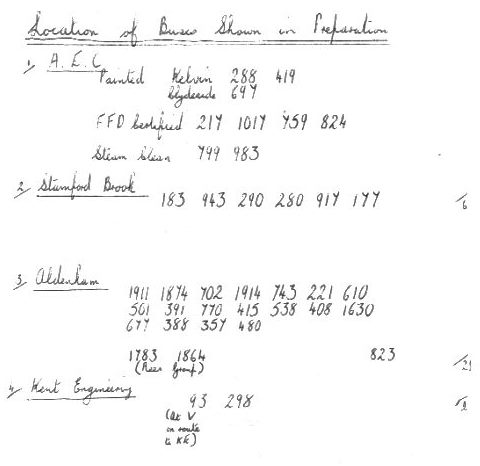 Location of Buses Shown in Preparation
1/ A.E.C
Painted Kelvin 288 419
Clydeside 697
FFD Certified 217 1017 759 824
Steam Clean 799 983
2/ Stamford Brook
183 943 290 280 917 177 /6
3/ Aldenham
1911 1874 702 1914 743 221 610
501 391 770 415 538 408 1630
677 388 357 480
1783 1864 823
(Rees Group) /21
4/ Kent Engineering
93 298 /2
(At V
en route
to KE)